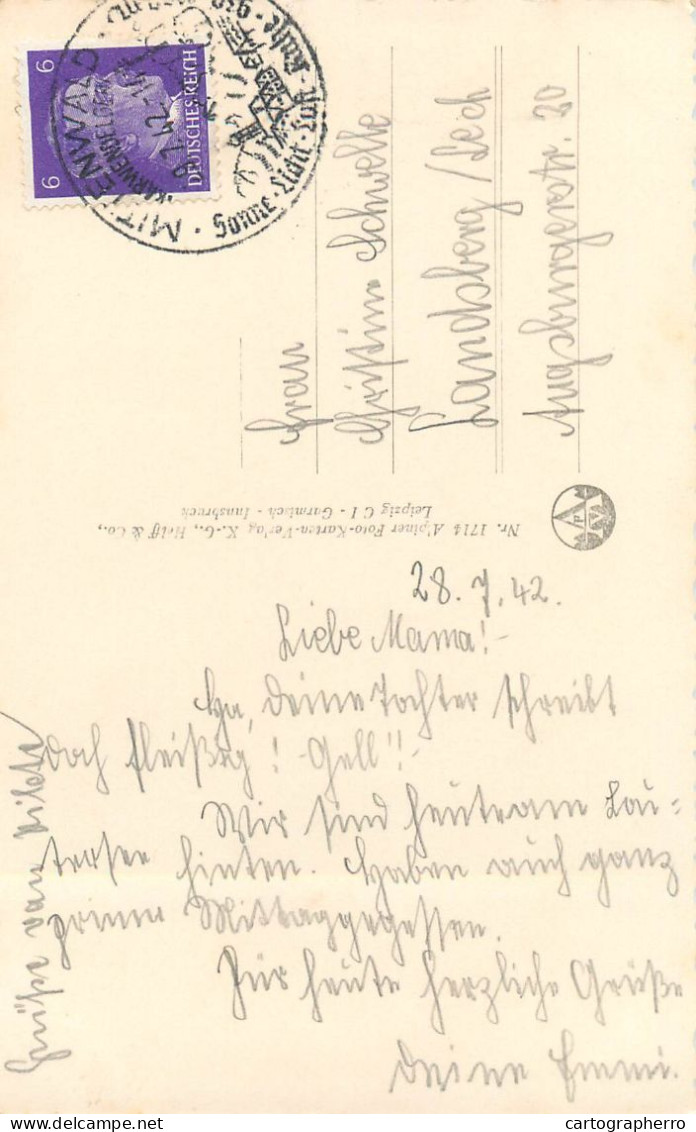 6
6
DEUTSCHES REICH
MITTENWALD
KARWENDEL
Sonne·Licht·Luft·
Frau
Christine Schwelle
Landsberg/Lech
20
Nr. 1714 Alpiner Foto-Karten-Verlag K.-G., Helff & Co.,
Leipzig C 1 - Garmisch - Innsbruck
28.7.42.
Liebe Mama!-
Ha, deine Tochter schreibt
doch fleißig! -Gell!!-
Wir sind heute am Lau-
tersee hinten. Haben auch ganz
prima Mittaggegessen.
Für heute herzliche Grüße
deine Emmi.
Grüße von
cartographerro